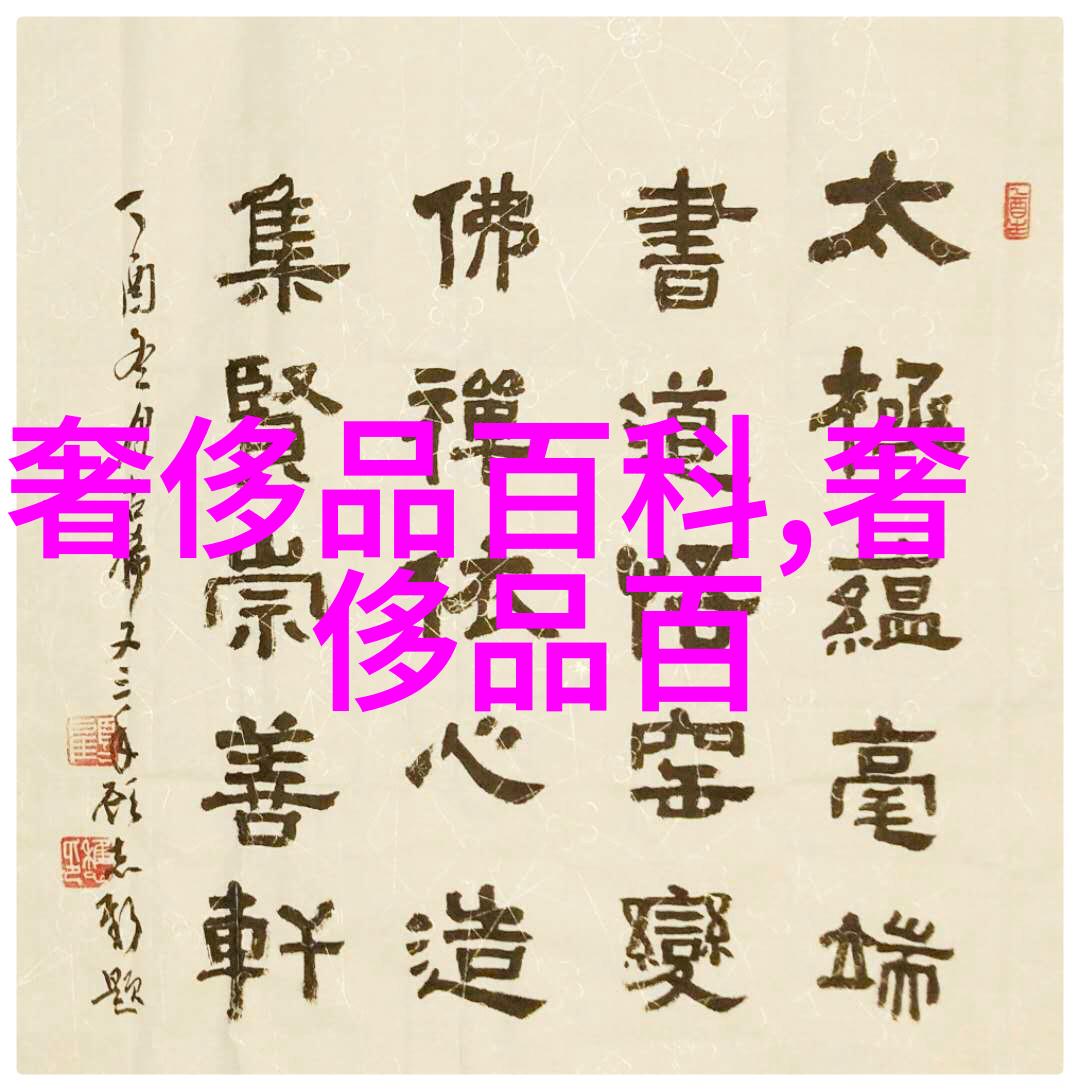 奢侈品百科,奢
侈品百
太極蘊毫端
書道悟窑變
佛禪依心造
集賢崇善軒